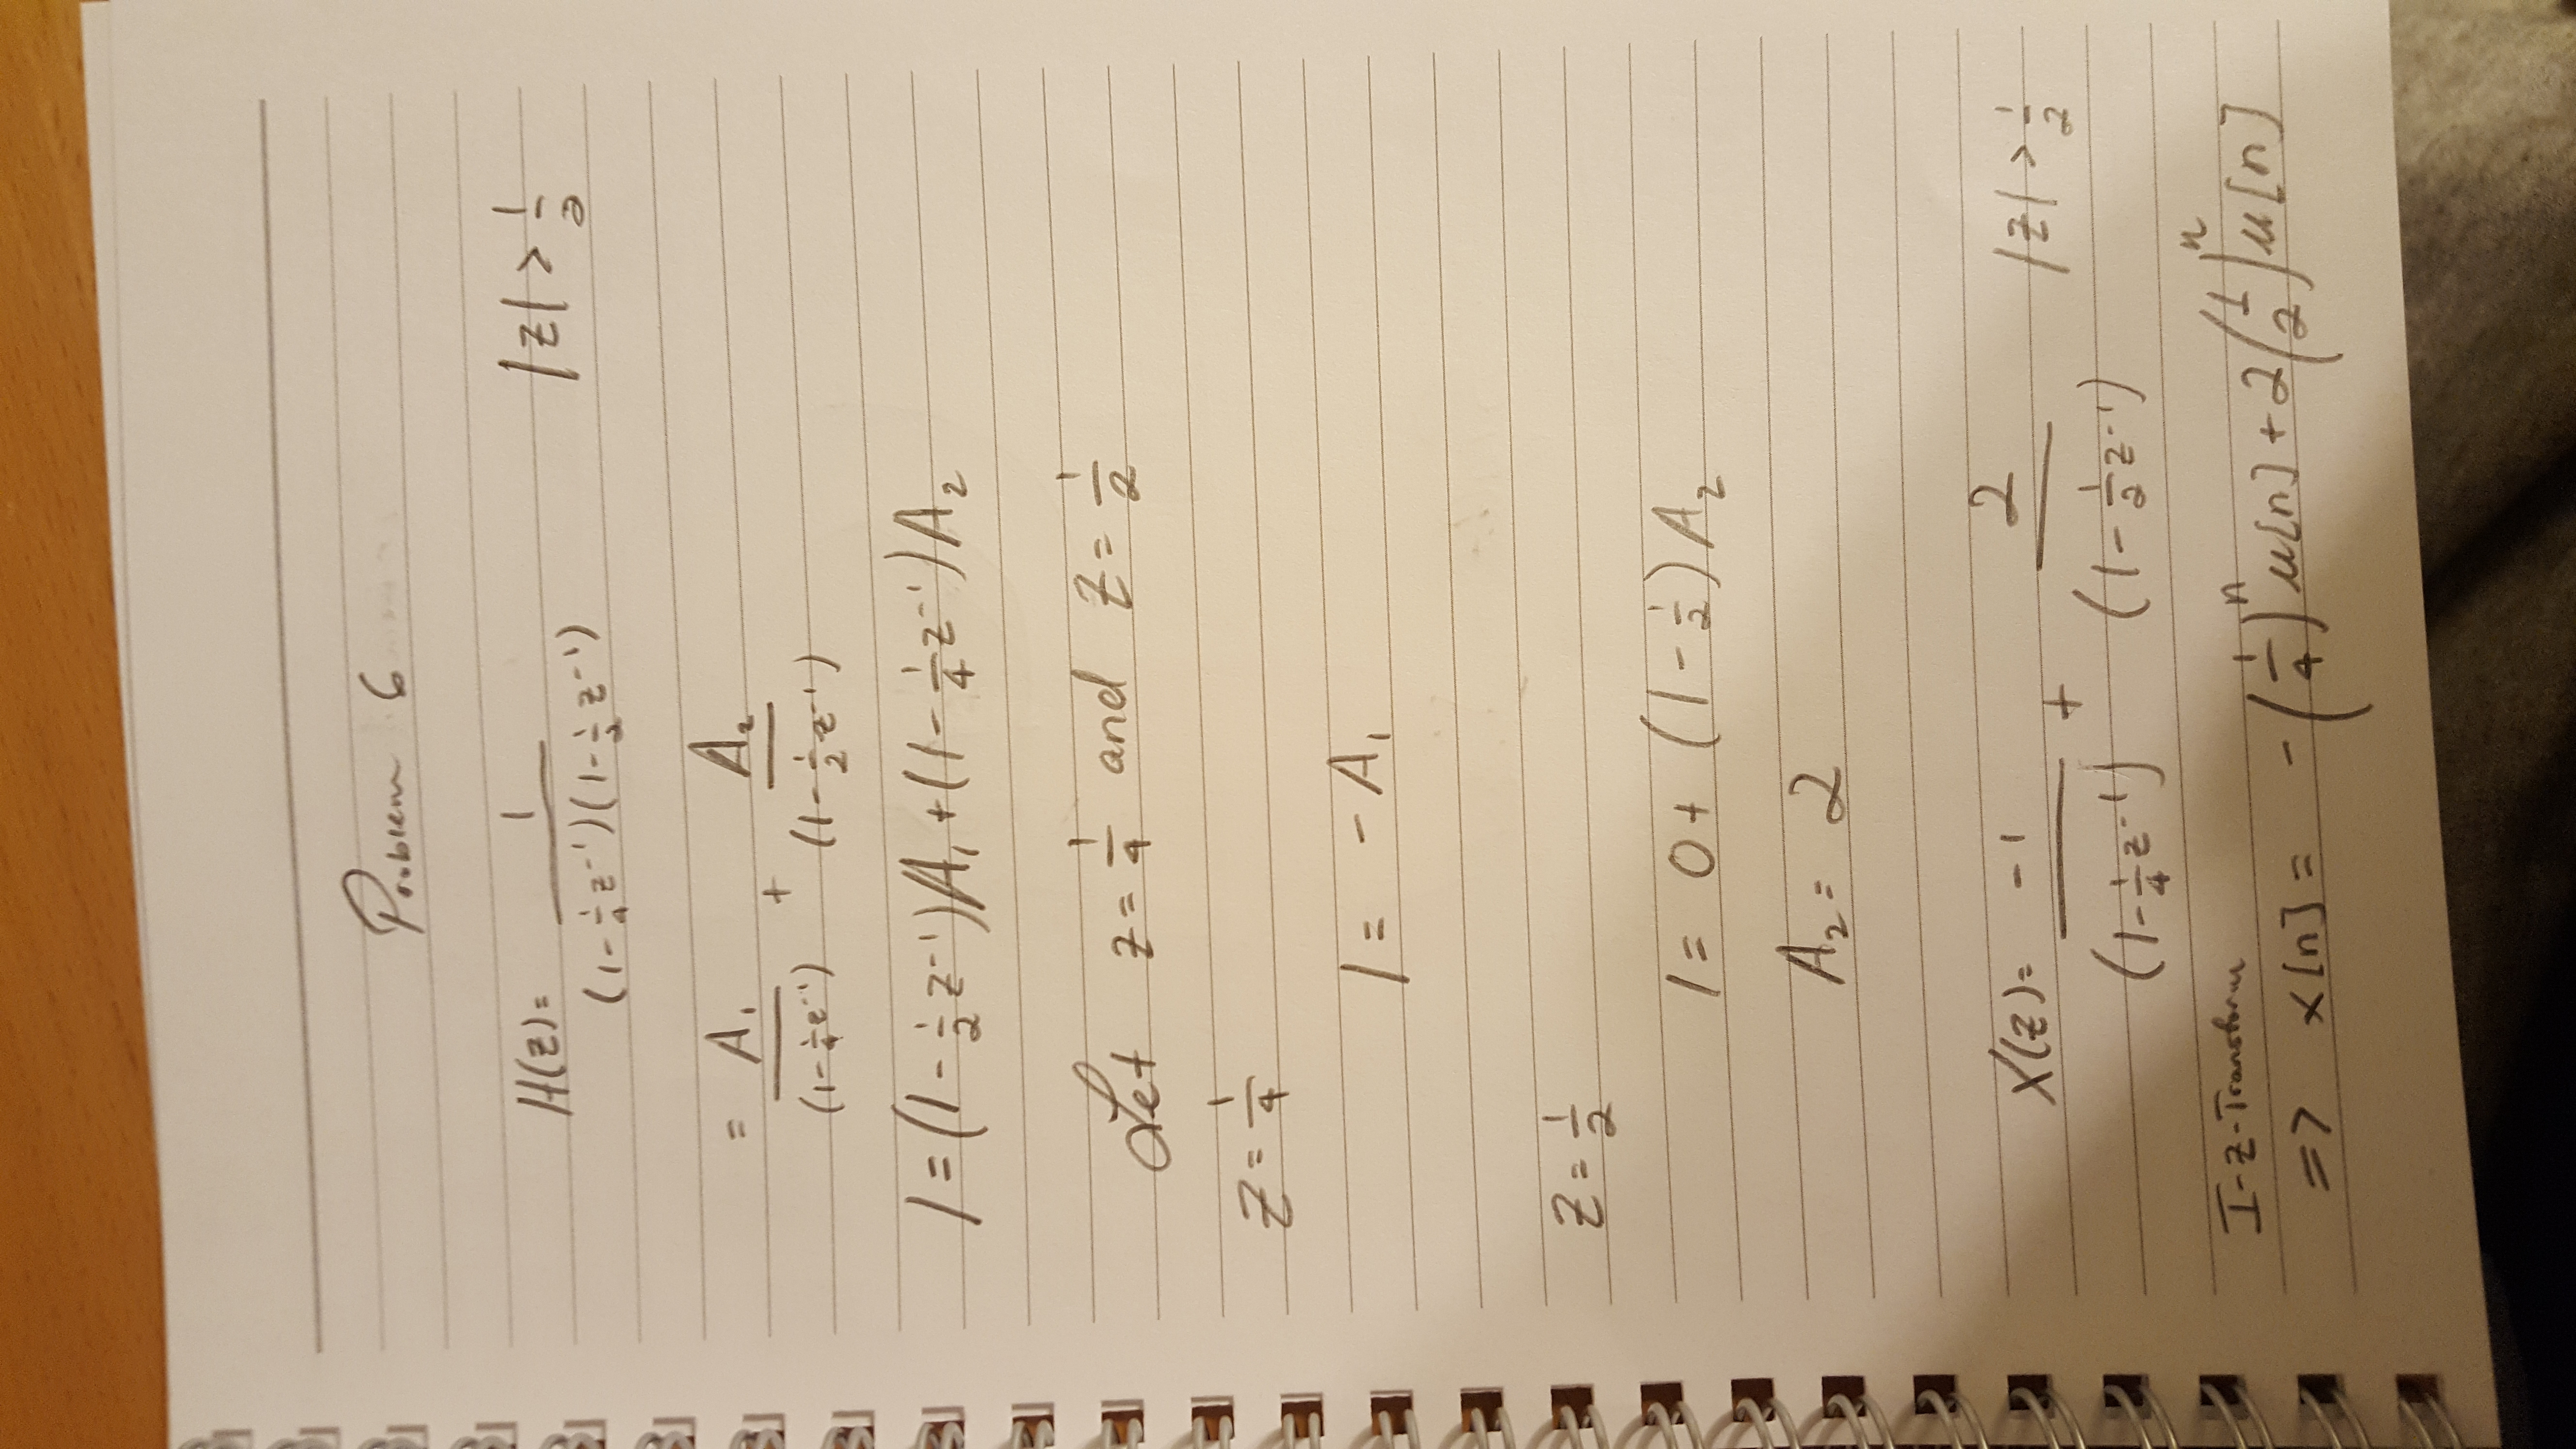 Problem 6
H(z) = 1 / ((1 - 1/4 z^-1)(1 - 1/2 z^-1)) |z| > 1/2
= A₁ / (1 - 1/4 z^-1) + A₂ / (1 - 1/2 z^-1)
1 = (1 - 1/2 z^-1)A₁ + (1 - 1/4 z^-1)A₂
Let z = 1/4 and z = 1/2
z = 1/4
1 = - A₁
z = 1/2
1 = 0 + (1 - 1/2) A₂
A₂ = 2
X(z) = -1 / (1 - 1/4 z^-1) + 2 / (1 - 1/2 z^-1) |z| > 1/2
I-z-Transform
=> x[n] = - (1/4)^n u[n] + 2 (1/2)^n u[n]